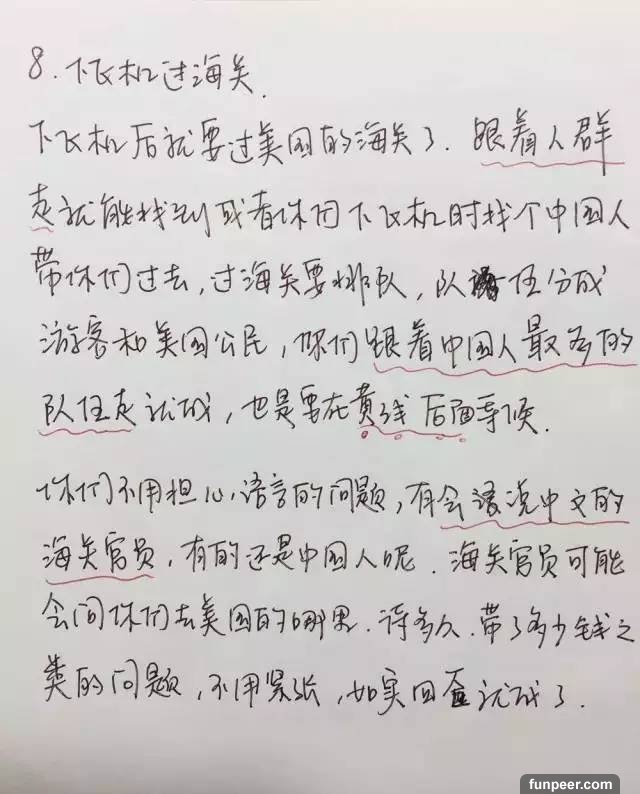 8. 下飞机过海关.
下飞机后就要过美国的海关了. 跟着人群
走就能找到或者你们下飞机时找个中国人
带你们过去, 过海关要排队, 队伍分成
游客和美国公民, 你们跟着中国人最多的
队伍走就成, 也是要在黄线后面等候.
你们不用担心语言的问题, 有会说中文的
海关官员, 有的还是中国人呢. 海关官员可能
会问你们去美国的哪里. 待多久. 带了多少钱之
类的问题, 不用紧张, 如实回答就成了.
funpeer.com